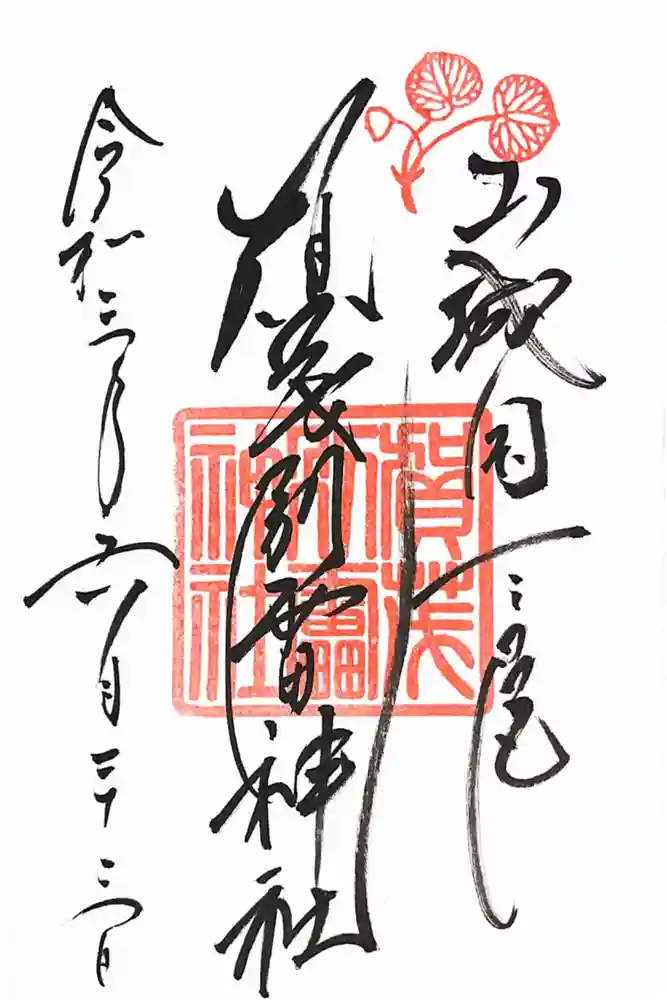 山城国一之宮
賀茂別雷神社
賀茂別雷神社
令和三年六月二十二日